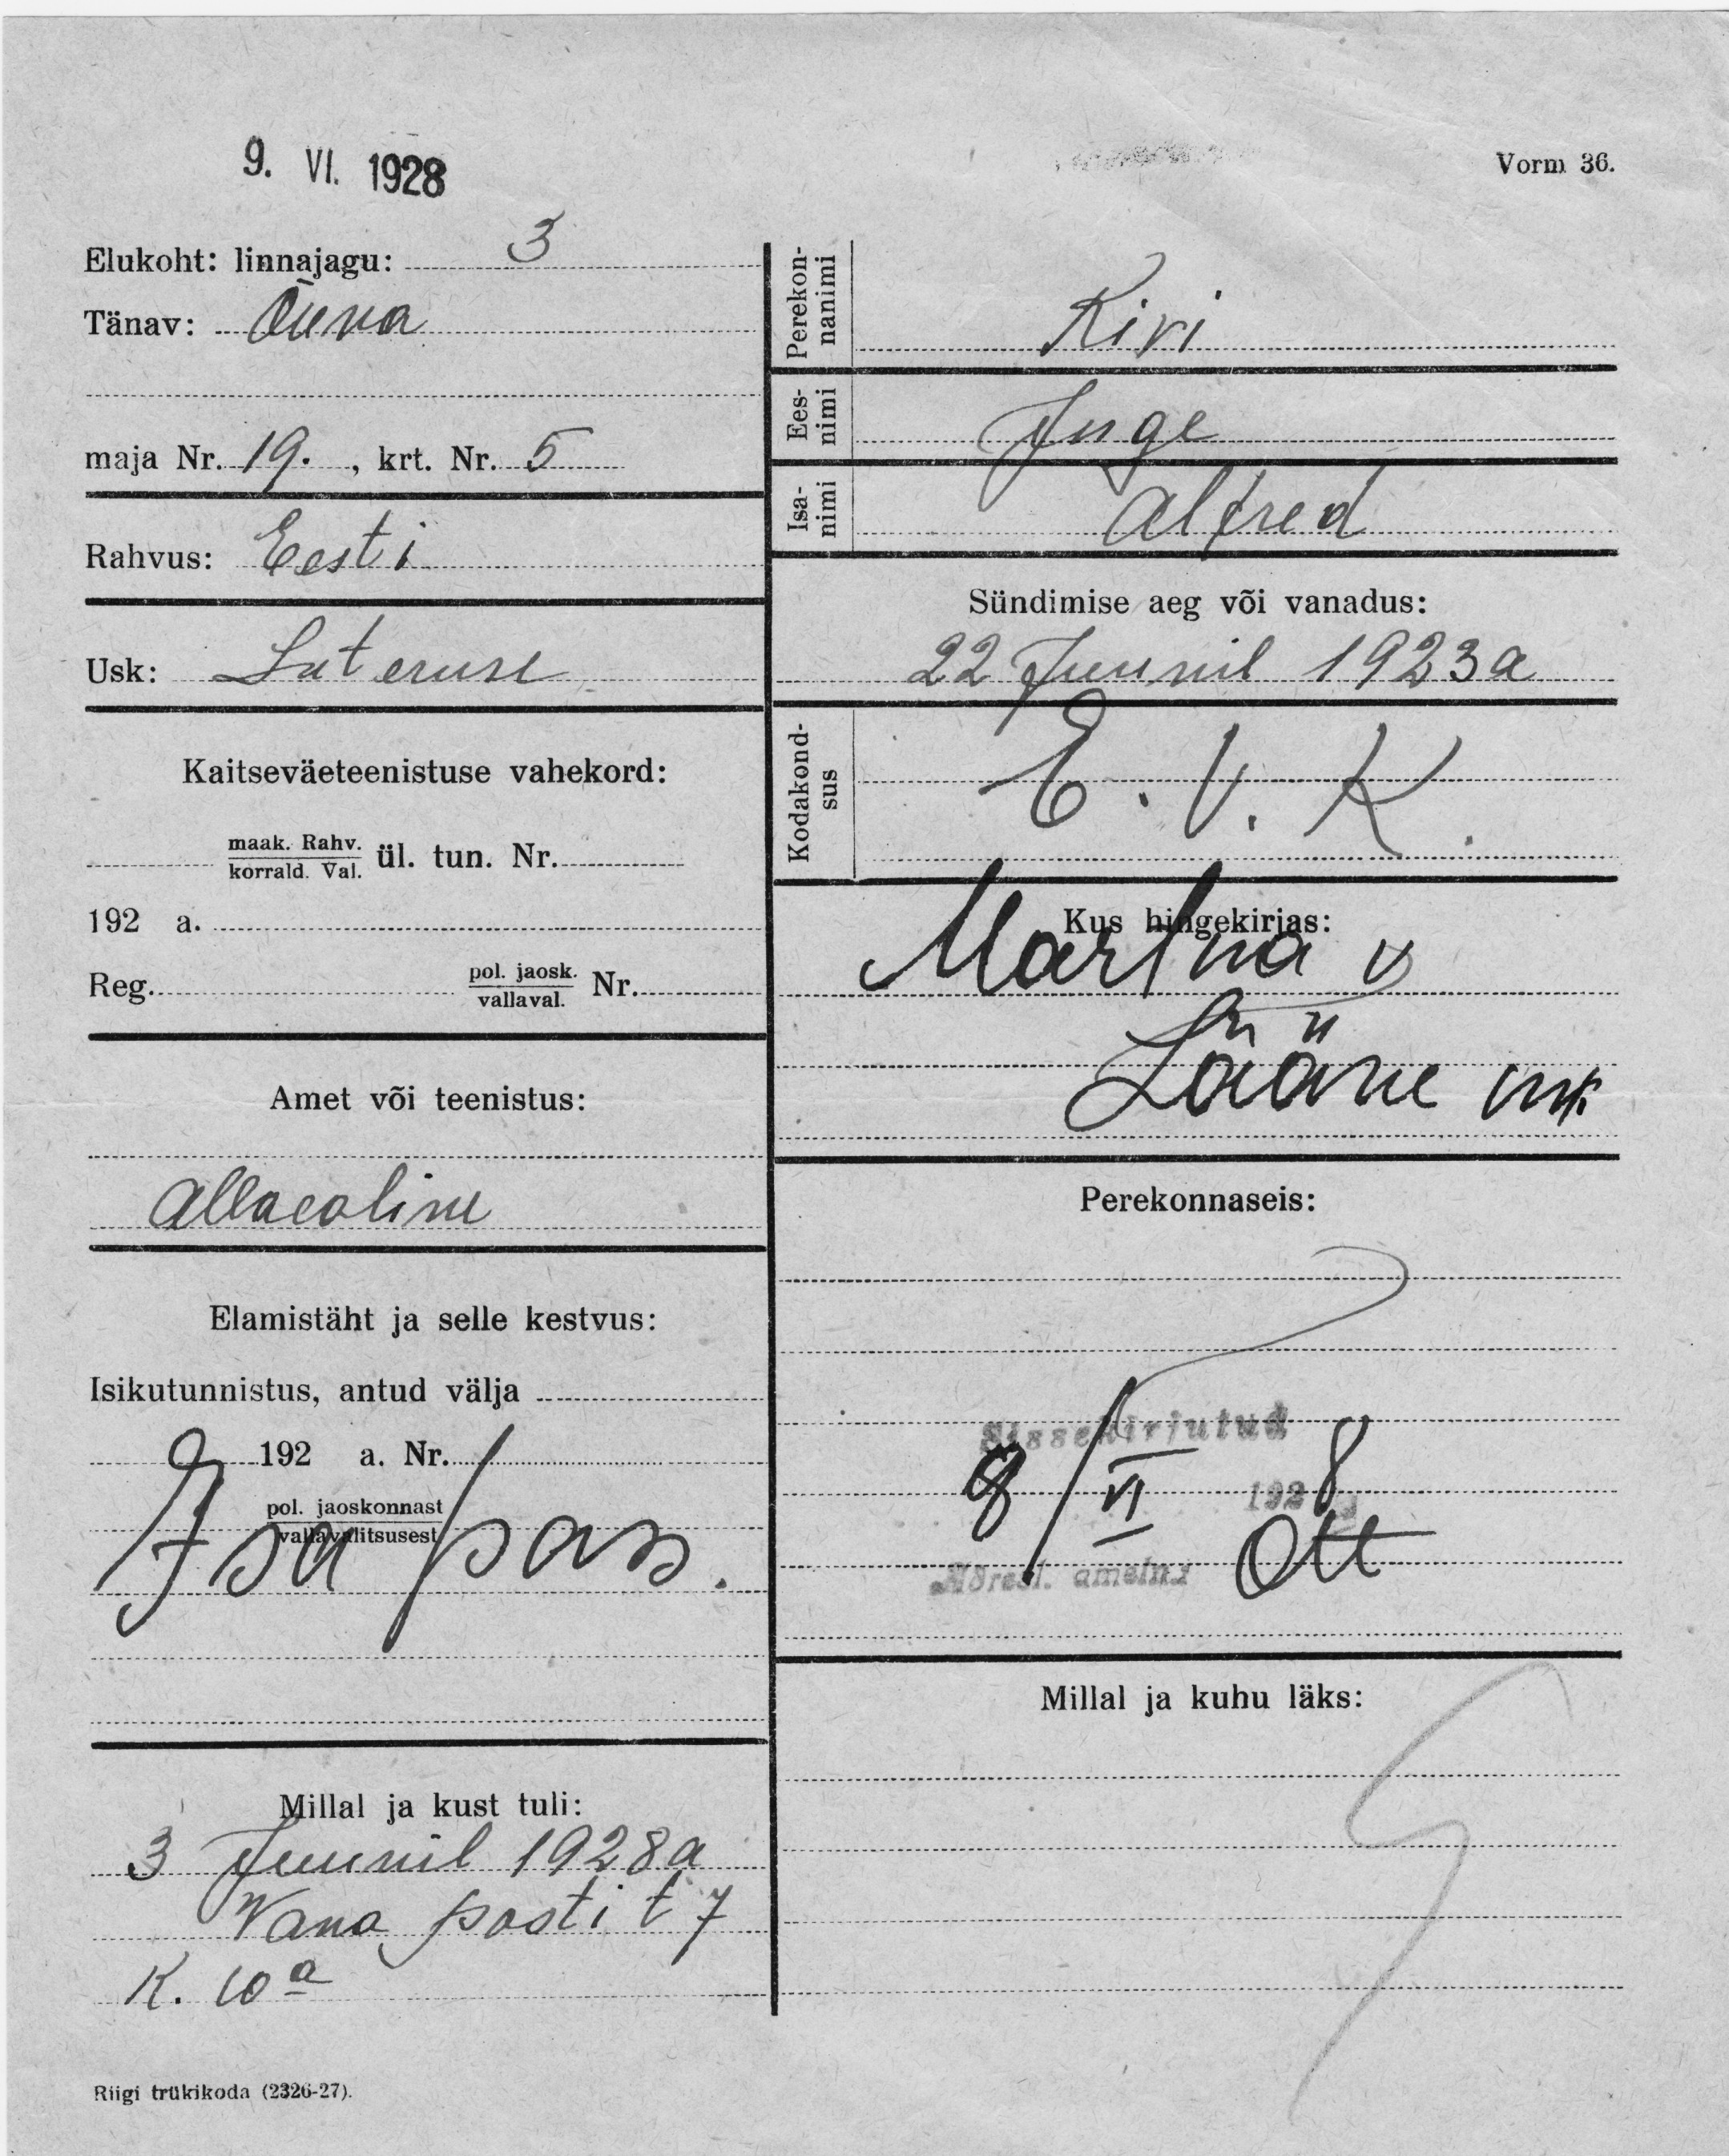 9. VI. 1928
Vorm 36.
Elukoht: linnajagu: 3
Tänav: Õuna
maja Nr. 19. , krt. Nr. 5
Rahvus: Eesti
Usk: Luteruse
Kaitseväeteenistuse vahekord:
maak. Rahv.
korrald. Val. ül. tun. Nr.
192 a.
Reg. pol. jaosk.
vallaval. Nr.
Amet või teenistus:
Allaealine
Elamistäht ja selle kestvus:
Isikutunnistus, antud välja
192 a. Nr.
pol. jaoskonnast
vallavalitsusest
Isa pass.
Millal ja kust tuli:
3 Juunil 1928 a
Vana posti t 7
K. 10 a
Riigi trükikoda (2326-27).
Perekon-
nanimi
Kivi
Ees-
nimi
Inge
Isa-
nimi
Alfred
Sündimise aeg või vanadus:
22 Juunil 1923 a
Kodakond-
sus
E. V. K.
Kus hingekirjas:
Martna v
Lääne mk.
Perekonnaseis:
Sissekirjutud
8/VI 1928
Ott
Millal ja kuhu läks: